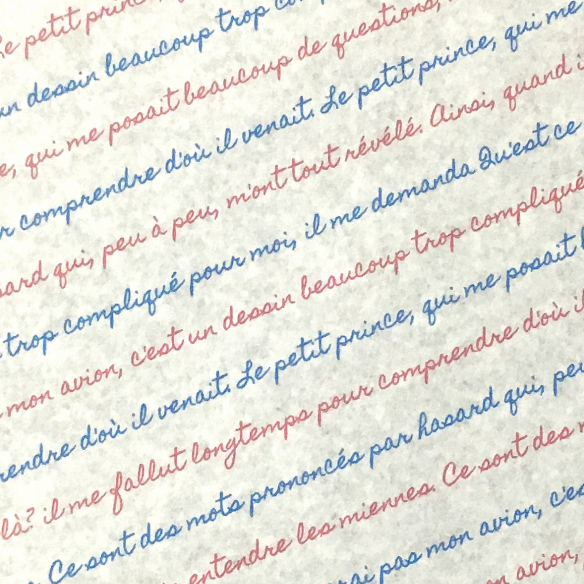 Le petit prin
un dessin beaucoup trop
e, qui me posait beaucoup de questions,
r comprendre d'où il venait. Le petit prince, qui me
sard qui, peu à peu, m'ont tout révélé. Ainsi, quand i
trop compliqué pour moi, il me demanda Qu'est ce
mon avion, c'est un dessin beaucoup trop compliqué
rendre d'où il venait. Le petit prince, qui me posait b
là? il me fallut longtemps pour comprendre d'où il
. Ce sont des mots prononcés par hasard qui, peu
entendre les miennes. Ce sont des m
rai pas mon avion, c'es
on avion,